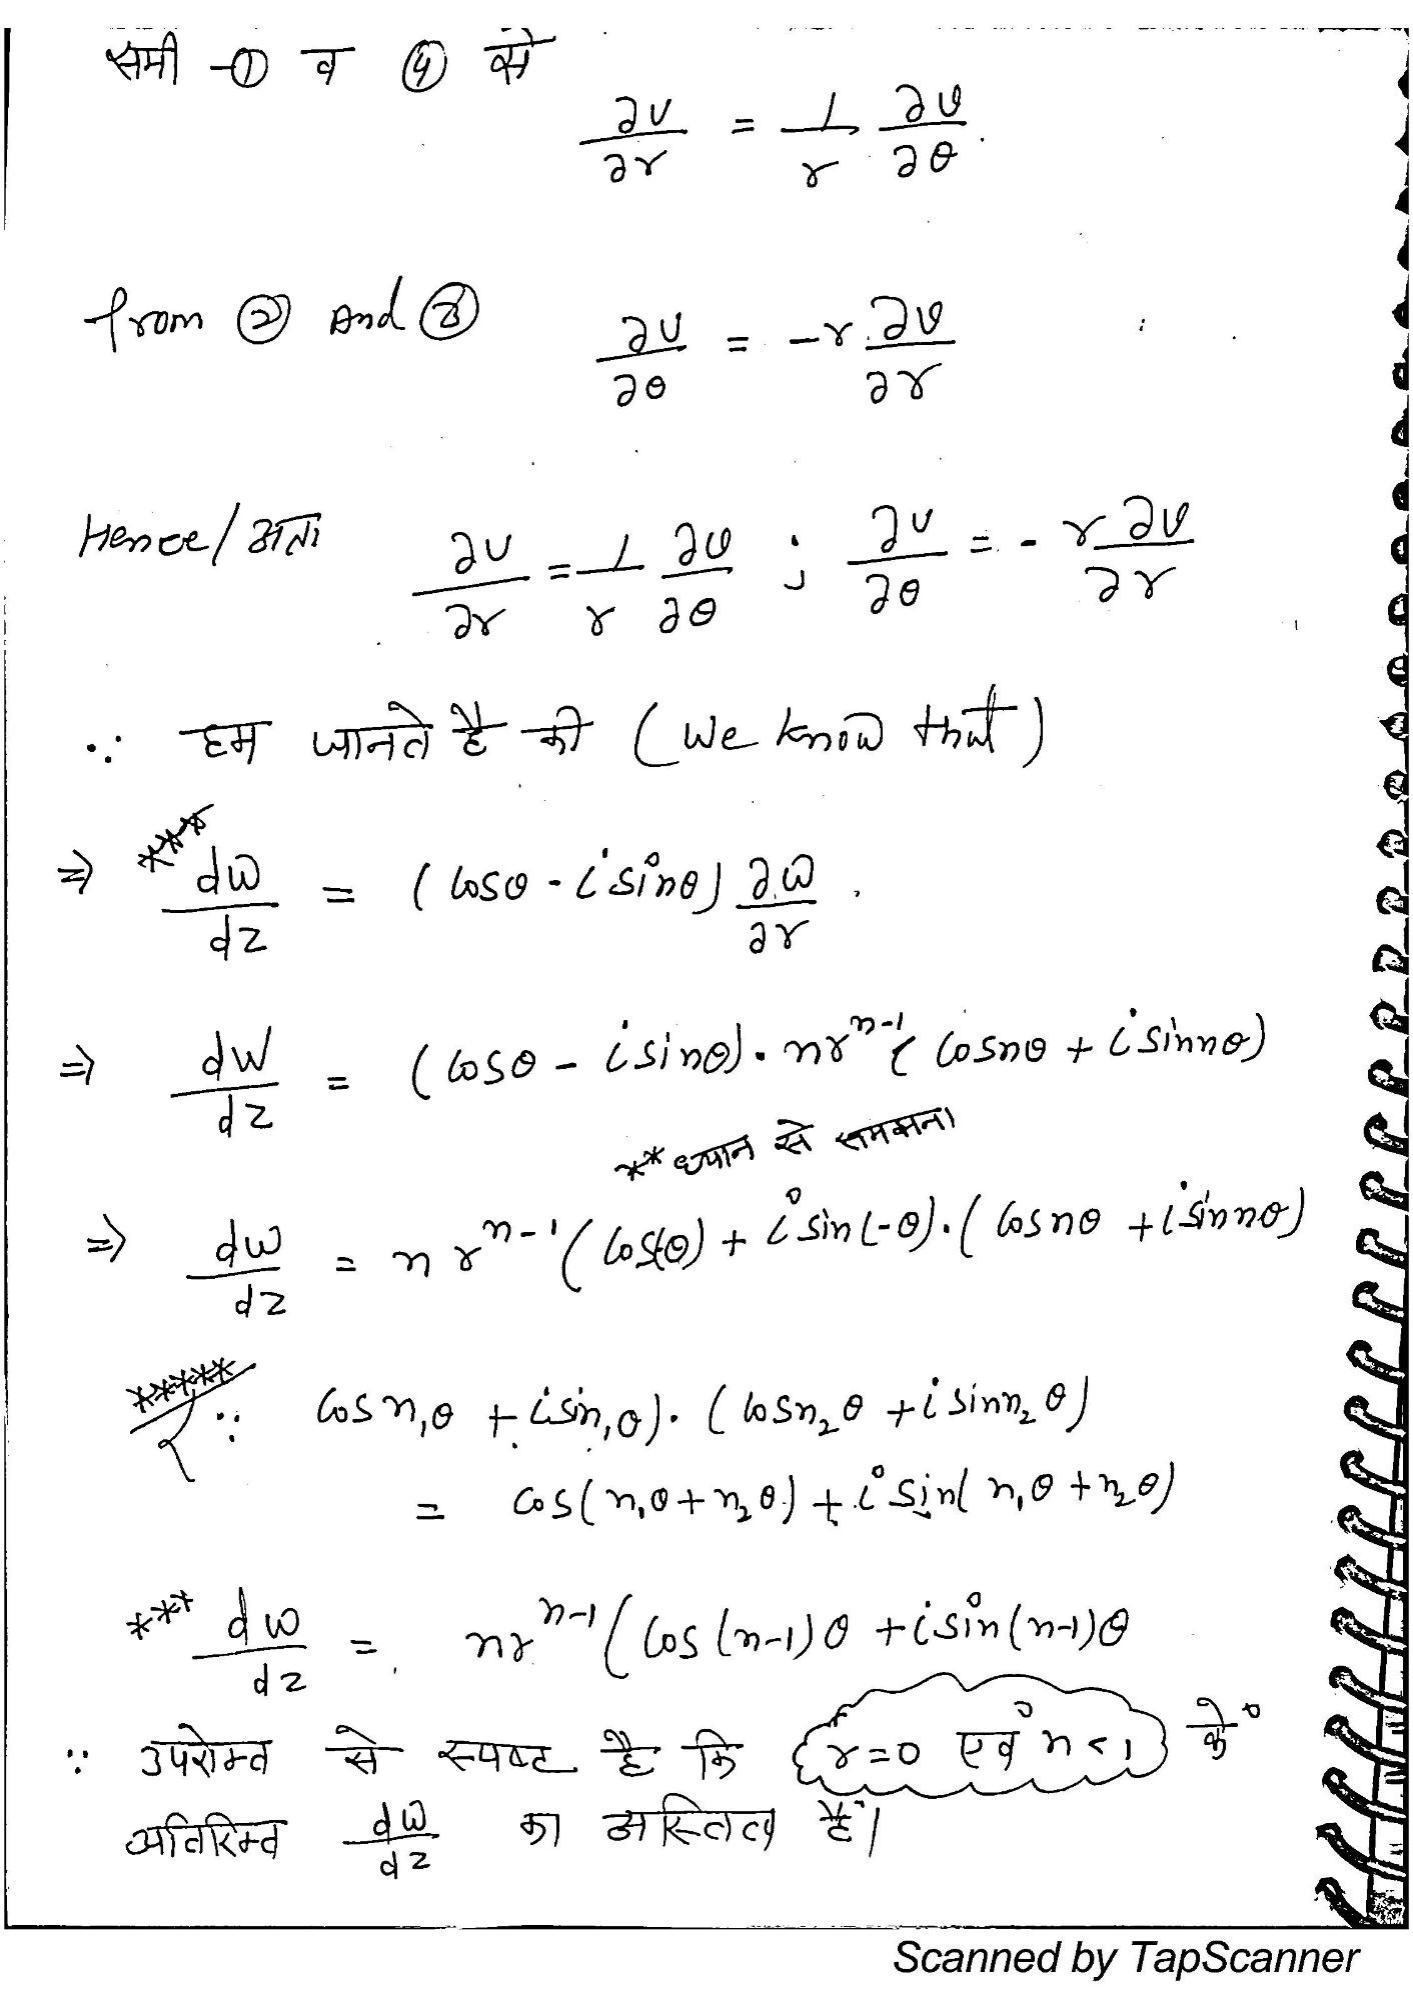 समी -① व ④ से
∂u/∂r = 1/r ∂v/∂θ.
from ② And ③ ∂u/∂θ = -r ∂v/∂r
Hence/अतः ∂u/∂r = 1/r ∂v/∂θ ; ∂u/∂θ = - r ∂v/∂r
∵ हम जानते है की (We know that)
⇒ *** dw/dz = (cosθ - i sinθ) ∂w/∂r .
⇒ dw/dz = (cosθ - i sinθ). nr^{n-1} (cosnθ + i sinnθ)
** ध्यान से समझना
⇒ dw/dz = n r^{n-1} (cos(-θ) + i sin(-θ).(cosnθ + i sinnθ)
***** { ∵ cos n₁θ + i sin₁θ). (cosn₂θ + i sinn₂θ)
= cos(n₁θ + n₂θ) + i sin(n₁θ + n₂θ)
*** dw/dz = nr^{n-1} (cos(n-1)θ + i sin(n-1)θ
∵ उपरोक्त से स्पष्ट है कि r=0 एवं n<1 के
अतिरिक्त dw/dz का अस्तित्व हैं।
Scanned by TapScanner